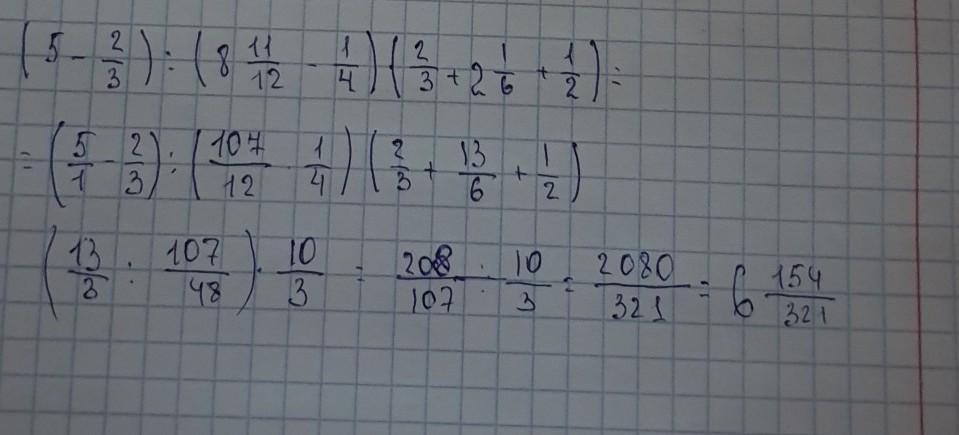 (5 - 2/3) : (8 11/12 - 1/4) (2/3 + 2 1/6 + 1/2) =
= (5/1 - 2/3) : (107/12 · 1/4) (2/3 + 13/6 + 1/2)
(13/3 : 107/48) · 10/3 = 208/107 · 10/3 = 2080/321 = 6 154/321